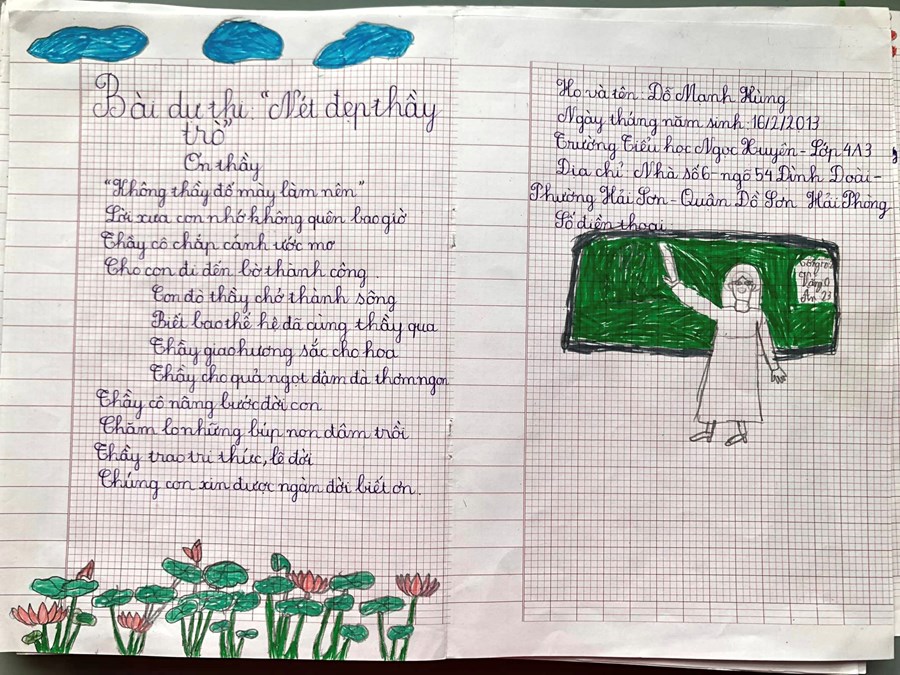 Bài dự thi: "Nét đẹp thầy
trò"
Ơn thầy
"Không thầy đố mày làm nên"
Lời xưa con nhớ không quên bao giờ
Thầy cô chắp cánh ước mơ
Cho con đi đến bờ thành công
Con đò thầy chở thành sông
Biết bao thế hệ đã cùng thầy qua
Thầy giao hương sắc cho hoa
Thầy cho quả ngọt đậm đà thơm ngon
Thầy cô nâng bước đời con
Chăm lo những búp non đâm trồi
Thầy trao tri thức, lẽ đời
Chúng con xin được ngàn đời biết ơn.
Họ và tên: Đỗ Mạnh Hùng
Ngày tháng năm sinh: 16/2/2013
Trường Tiểu học Ngọc Xuyên - Lớp 4A3
Địa chỉ: Nhà số 6 - ngõ 54 Đình Đoài -
Phường Hải Sơn - Quận Đồ Sơn Hải Phòng
Số điện thoại
Vắng 0
Ăn 23